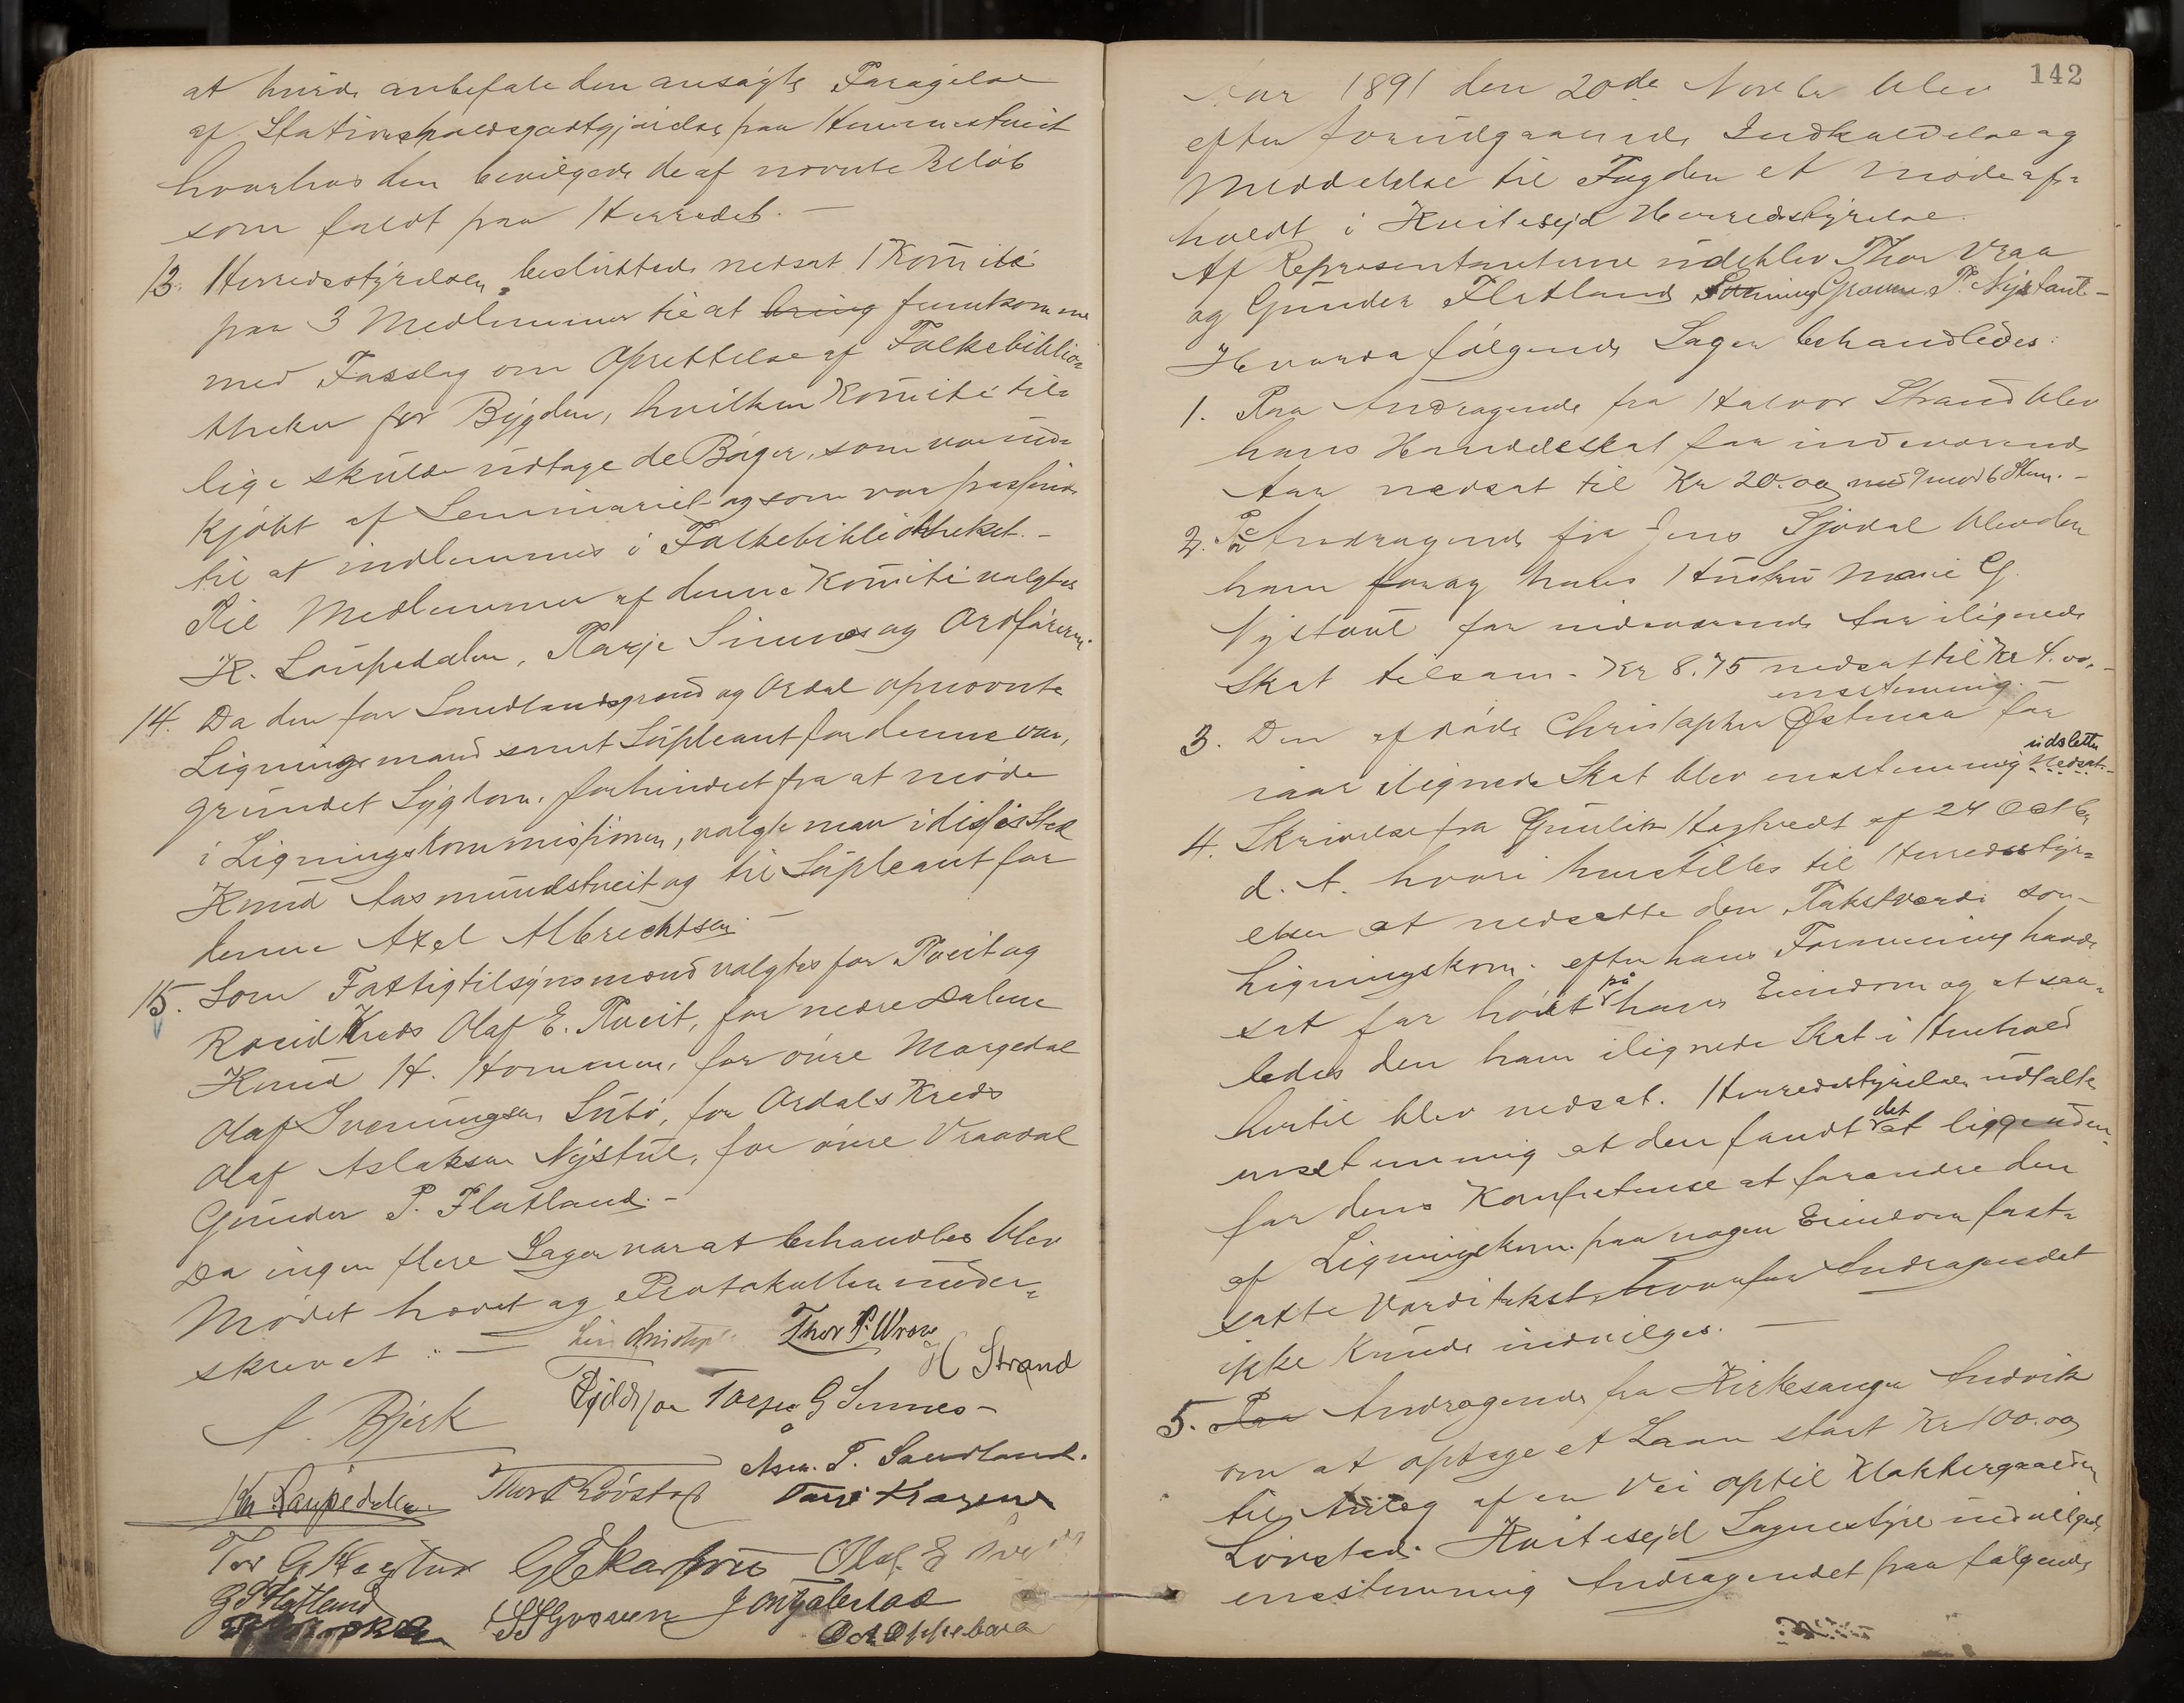 at burde anbefale den ansøgte Forøgelse
af Stationsholdsgodtgjørelse paa Hemmestveit
hvorhos den bevilgede de af nævnte Beløb
som faldt paa Herredet. —
13. Herredsstyrelsen besluttede nedsat 1 Komite
paa 3 Medlemmer til at bring fremkomme
med Forslag om Oprettelse af Folkebiblio=
theker for Bygden, hvilken Komite til=
lige skulde udtage de Bøger, som var ind=
kjøbt af Seminariet og som var passende
til at indlemmes i Folkebibliotheket. -
Til Medlemmer af denne Komite valgtes
K. Loupedalen, Tarje Sinnes og Ordføreren.
14. Da den for Sandlandsgrend og Ordal opnævnte
Ligningsmand samt Supleant for denne var,
grundet Sygdom, forhindret fra at møde
i Ligningskommissionen, valgte man i disses Sted
Knud Aasmundstveit og til Supleant for
denne Axel Albrechtsen. —
15. Som Fattigtilsynsmænd valgtes for Tveit og
Roeid Kreds Olaf E. Tveit, for nedre Dalene
Knud H. Hommen, for øvre Morgedal
Olaf Sveinungsen Subø, for Ordals Kreds
Olaf Aslaksen Nystul, for øvre Vraadal
Gunder P. Flatland. -
Da ingen flere Sager var at behandles blev
Mødet hævet og Protokollen under=
skrevet :—
Thor P. Wraa
H Strand
Tarje G Sinnes -
A. Bjerk
Asm. T. Sandland.
Kn. Loupedalen
Olaf. E
G P Flatland
142
Aar 1891 den 20de Novbr blev
efter forudgaaende Indkaldelse og
Meddelelse til Fogden et møde af=
holdt i Kviteseid Herredsstyrelse.
Af Repræsentanterne udeblev Thor Vraa
og Gunder Flatland P. Nystaul -
Hvorda følgende Sager behandledes:
1. Paa Andragende fra Halvor Strand blev
hans Herredsskat for indeværende
Aar nedsat til Kr 20.00 med 9 mod 6 Stem. -
2. Paa Andragende fra Jens Sjødal blev den
ham for og hans Hustru Marie G.
Nystaul for indeværende Aar ilignede
Skat tilsam. Kr 8.75 nedsat til Kr 4.00. -
enstemmig. -
3. Den afdøde Christopher Østmaa for
iaar ilignede Skat blev enstemmig nedsat
udslettet
4. Skrivelse fra Gunlik Haatvedt af 24 Octbr
d. A. hvori henstilles til Herredsstyr=
elsen at nedsætte den Takstværdi som
Ligningskom. efter hans Formening havde
sat for høit på hans Eiendom og at saa=
ledes den ham ilignede Skat i Henhold
hertil blev nedsat. Herredsstyrelsen udtalte
enstemmig at den fandt det at ligge uden=
for dens Kompetense at forandre den
af Ligningskom. paa nogen Eiendom fast=
satte Værditakst, hvorfor Andragendet
ikke kunde indvilges. —
5. Paa Andragende fra Kirkesanger Andvik
om at optage et Laan stort Kr 100.00
til Anlæg af en Vei optil Klokkergaarden
Lønstad. Kviteseid Sognestyre indvilgede
enstemmig Andragendet paa følgende